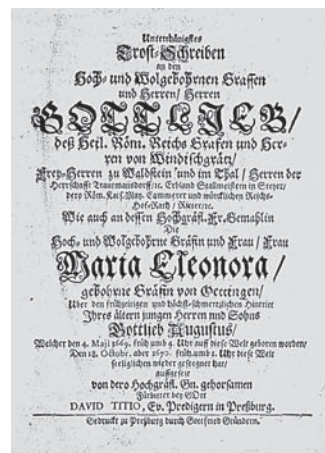 Unterthänigstes
Trost-Schreiben
an den
Hoch- und Wolgebohrnen Graffen
und Herren/ Herren
GOTTLIEB/
deß Heil. Röm. Reichs Grafen und Her-
ren von Windischgrätz/
Frey-Herren zu Waldstein und im Thal/ Herren der
Herrschafft Trautmansdorff/ıc. Erbland Stallmeistern in Steyer/
dero Röm. Kais. May. Cammerer und würcklichen Reichs-
Hof-Rath/ Ritter/ıc.
Wie auch an dessen Hochgräfl. Fr. Gemahlin
Die
Hoch- und Wolgebohrne Gräfin und Frau/ Frau
Maria Eleonora/
gebohrne Gräfin von Oettingen/
Uber den frühzeitigen und höchst-schmertzlichen Hintritt
Ihres ältern jungen Herren und Sohns
Gottlieb Augustus/
Welcher den 4. Maji 1669. früh umb 9. Uhr auff diese Welt geboren worden/
Den 18. Octobr. aber 1670. früh umb 1. Uhr diese Welt
seeliglichen wieder gesegnet hat/
auffgesetzt
von dero Hochgräfl. Gn. gehorsamen
Fürbitter bey GOtt
DAVID TITIO, Ev. Predigern in Preßburg.
Gedruckt zu Preßburg durch Gottfried Gründern.